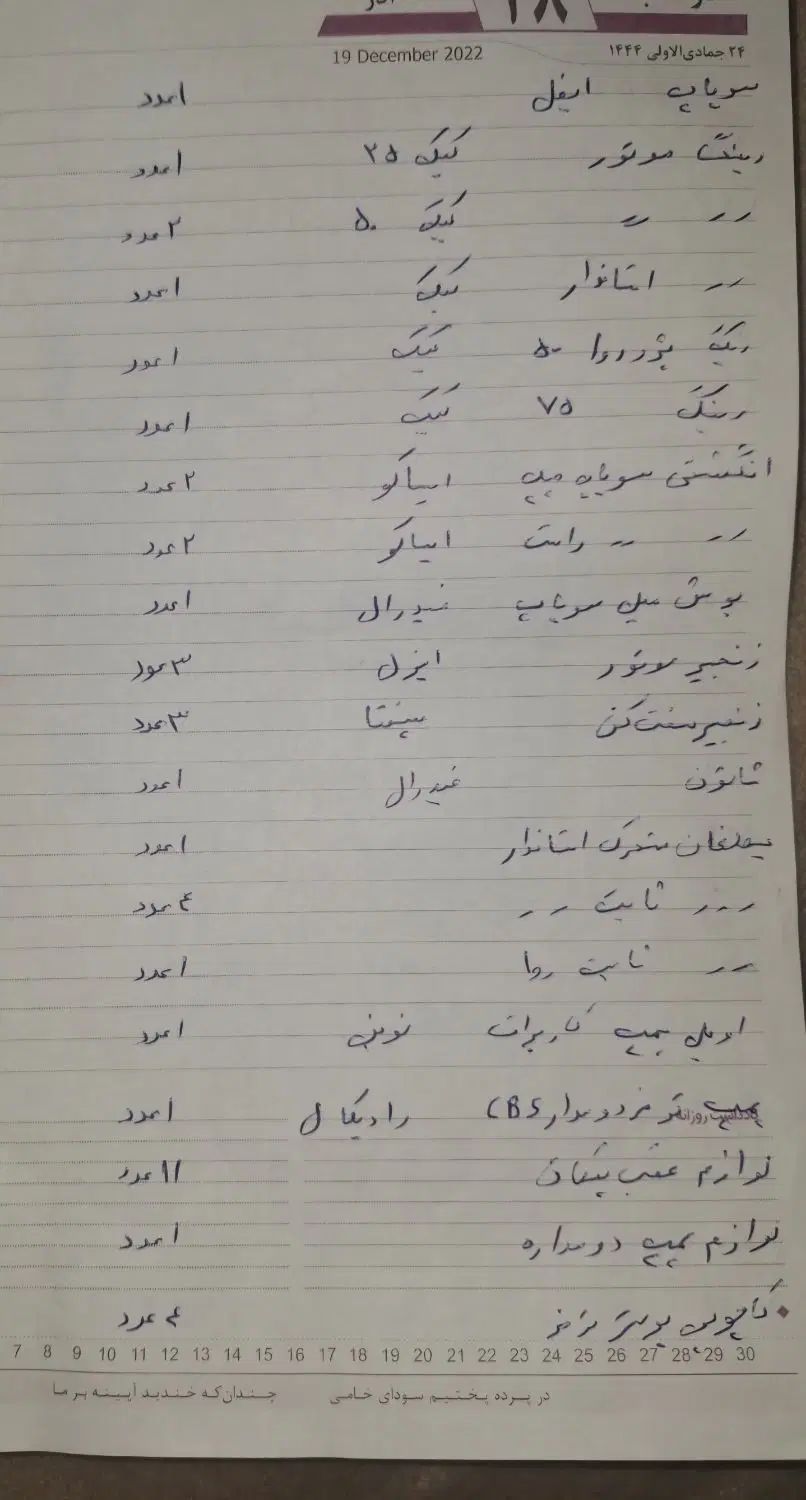 ۲۸
۲۴ جمادی‌الاولی ۱۴۴۴ 19 December 2022
سوپاپ ایفل ۱عدد
رینگ موتور کیک ۲۵ ۱عدد
〃 〃 کیک ۵۰ ۲عدد
〃 استانوار کیک ۱عدد
رینگ پژو روا ۵۰ کیک ۱عدد
رینگ ۷۵ کیک ۱عدد
انگشتی سوپاپ چپ اساکو ۲عدد
〃 〃 راست اساکو ۲عدد
پوش میل سوپاپ فیدرال ۱عدد
زنجیر موتور ایزل ۳عدد
زنجیر سفت کن ۳عدد
شاتون فیدرال ۱عدد
متحرک استاندار ۱عدد
〃 ثابت 〃 ۴عدد
〃 ثابت روا ۱عدد
اویل پمپ کاربرات ۱عدد
یادداشت روزانه
پمپ ترمز دو مدار CBS رادیکال ۱عدد
لوازم عقب پیکان ۱۱عدد
لوازم پمپ دو مداره ۱عدد
بوستر ترمز ۴عدد
7 8 9 10 11 12 13 14 15 16 17 18 19 20 21 22 23 24 25 26 27 28 29 30
در پرده پختیم سودای خامی چندان‌که خندید آیینه بر ما